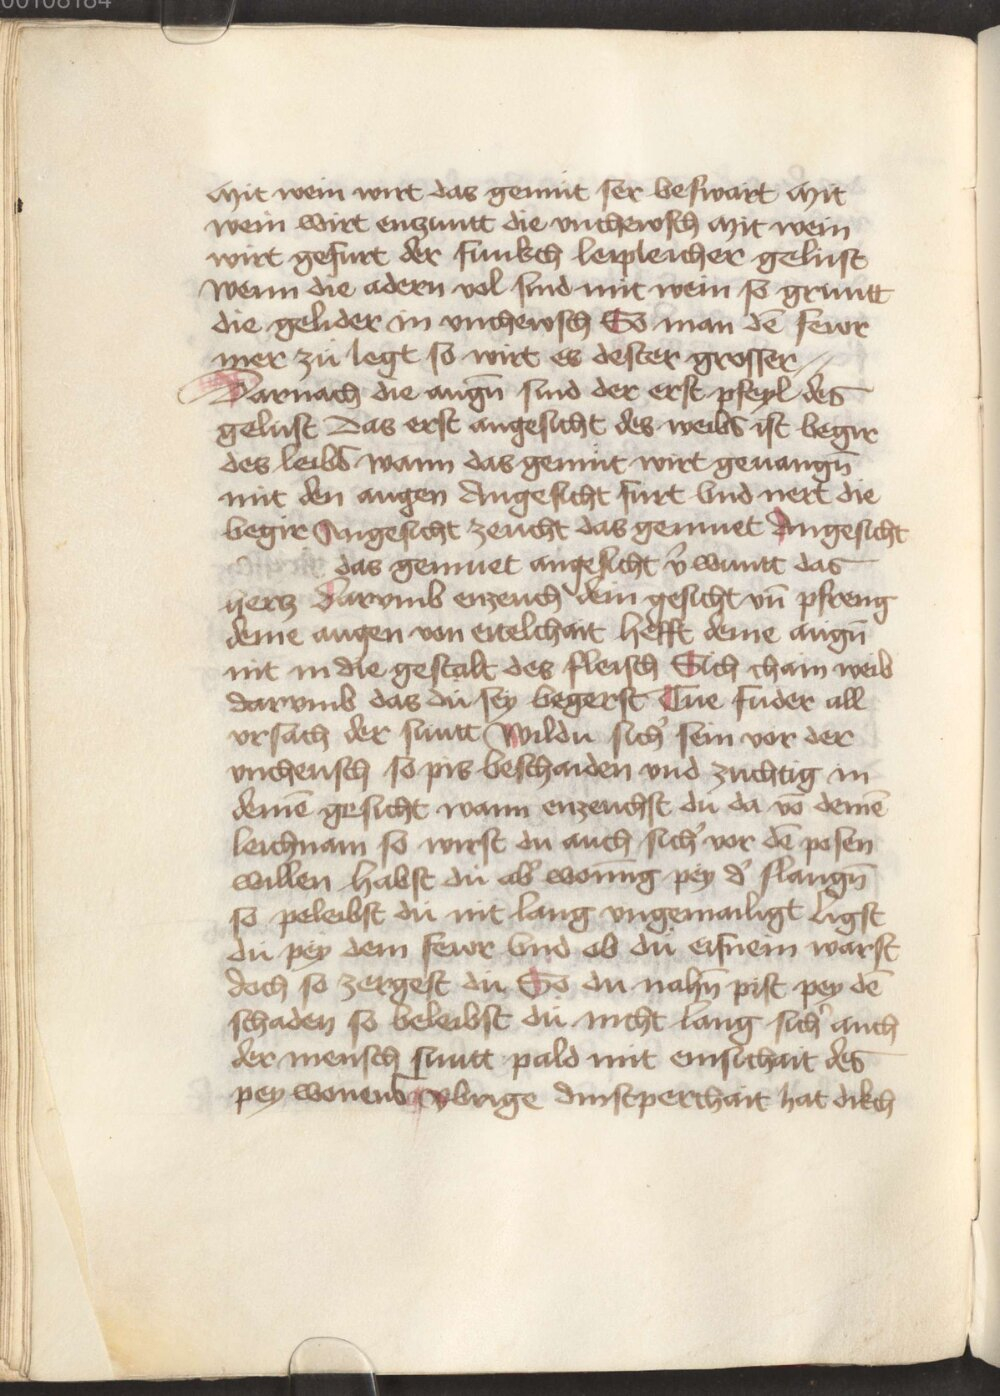 00108184
Mit wein wirt das gemut ser beswart Mit
wein wirt enzuntt die vnchewsch Mit wein
wirt gefurt der funkch leipleicher gelust
Wenn die adern vol sind mit wein so gruntt
die gelider in vnchewsch So man dē fewr
mer zu legt so wirt es dester grosser //
Darnach die augn̄ sind der erst pfeyl des
gelust Das erst angesicht des weibs ist begir
des leibs wann das gemut wirt geuangn̄
mit den augen Angesicht furt vnd nert die
begir Angesicht zeucht das gemuet Angesicht
das gemuet angesicht v̉wuntt das
hertz Darvmb enzeuch dein gesicht vn̄ pfreng
deine augen von eitelchait Hefft deine augn̄
nit in die gestalt des fleisch Sich chain weib
darvmb das du sey begerst Tue fuder all
vrsach der suntt Wildu sich̉ sein vor der
vncheusch so pis beschaiden vnd zuchtig in
deinē gesicht wann enzeuchst du da vō deinē
leichnam so wirst du auch sich̉ vor dē posen
willen Habst du ab̉ wonūg pey d̉ slangn̄
so peleibst du nit lang vngemailigt Ligst
du pey dem fewr vnd ob du eisnein warst
doch so zergest du So du nahn̄ pist pey dē
schaden so beleibst du nicht lang sich̉ auch
der mensch suntt pald mit emsichait des
pey wonens Vbrige dinstperchait hat dikch